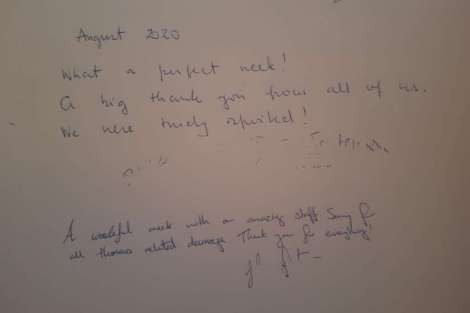 August 2020
What a perfect week!
A big thank you from all of us.
We were truly spoiled!
A wonderful week with an amazing staff Sorry for
all thomas related damage Thank you for everything!